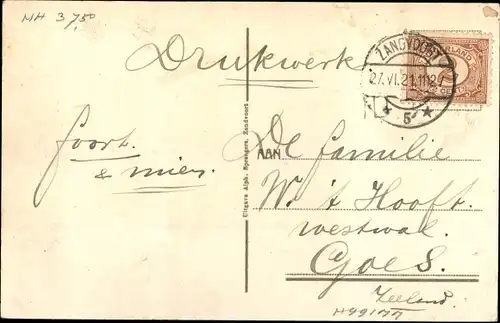 MH 3,50
Drukwerk
ZANDVOORT
27.VI.21.11
5
Joort.
& mies.
Uitgave Alph. Sprengers, Zandvoort
AAN
De familie
W. 't Hooft.
westwal.
Goes.
Zeeland.